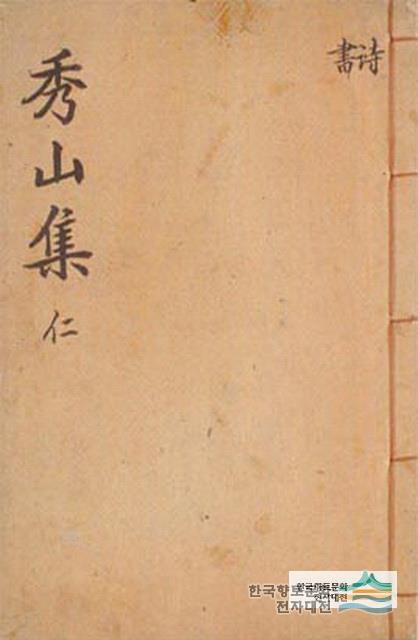 詩
書
秀山集
仁
한국향토문화
전자대전
한국향토문화
전자대전